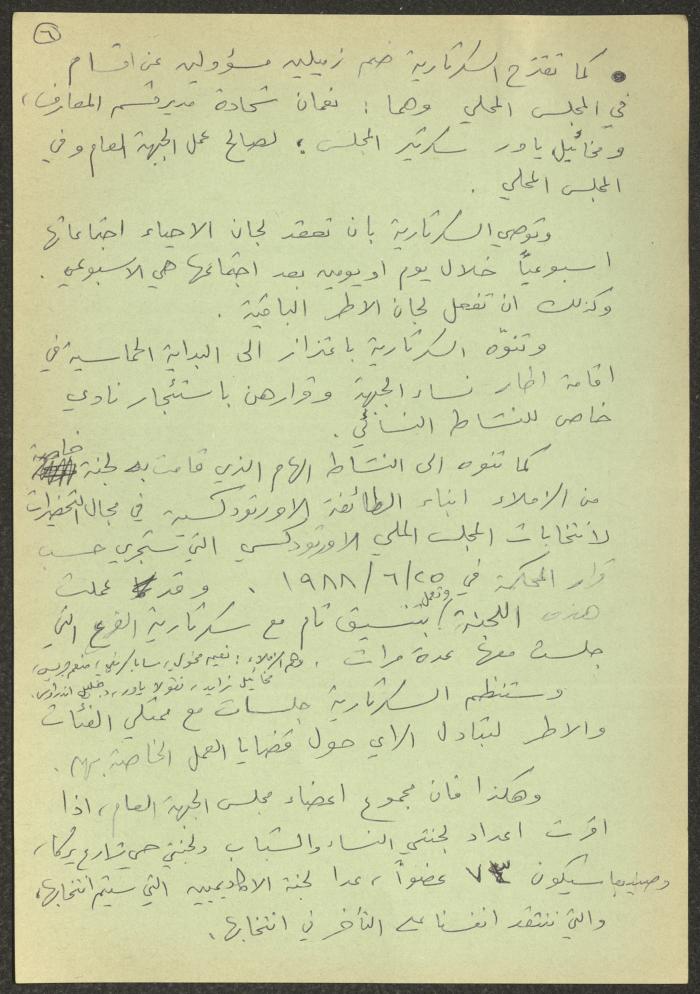 ٦
• كما تقترح السكرتارية ضم زميلين مسؤولين عن اقسام
في المجلس المحلي وهما: نعمان شحادة مدير قسم المعارف،
وميخائيل ياور سكرتير المجلس؛ لصالح عمل الجبهة العام وفي
المجلس المحلي.
وتوصي السكرتارية بان تعقد لجان الاحياء اجتماعاتها
اسبوعياً خلال يوم او يومين بعد اجتماعها هي الاسبوعي.
وكذلك ان تفعل لجان الاطر الباقية.
وتنوّه السكرتارية باعتزاز الى البداية الحماسية في
اقامة اطار نساء الجبهة وقرارهن باستئجار نادي
خاص للنشاط النسائي.
كما تنوه الى النشاط الهام الذي قامت به لجنة خاصة
من الزملاء ابناء الطائفة الاورثوذكسية في مجال التحضيرات
لانتخابات المجلس الملي الاورثوذكسي التي ستجري حسب
قرار المحكمة في ٢٥/٦/١٩٨٨. وقد عملت
هذه اللجنة وتعمل بتنسيق تام مع سكرتارية الفرع التي
جلست معها عدة مرات. وهم الزملاء: نعيم مخول، سابا، منعم جريس،
ميخائيل زايد، نقولا ياور، وخليل اندراوس.
وستنظم السكرتارية جلسات مع ممثلي الفئات
والاطر لتبادل الراي حول قضايا العمل الخاصة بهم.
وهكذا فان مجموع اعضاء مجلس الجبهة العام، اذا
اقرت اعداد لجنتي النساء والشباب ولجنتي حي شارع يركا،
سيكون ٧٣ عضواً، عدا لجنة الاكاديميين التي سيتم انتخابها،
والتي ننتقد انفسنا على التأخر في انتخابها.